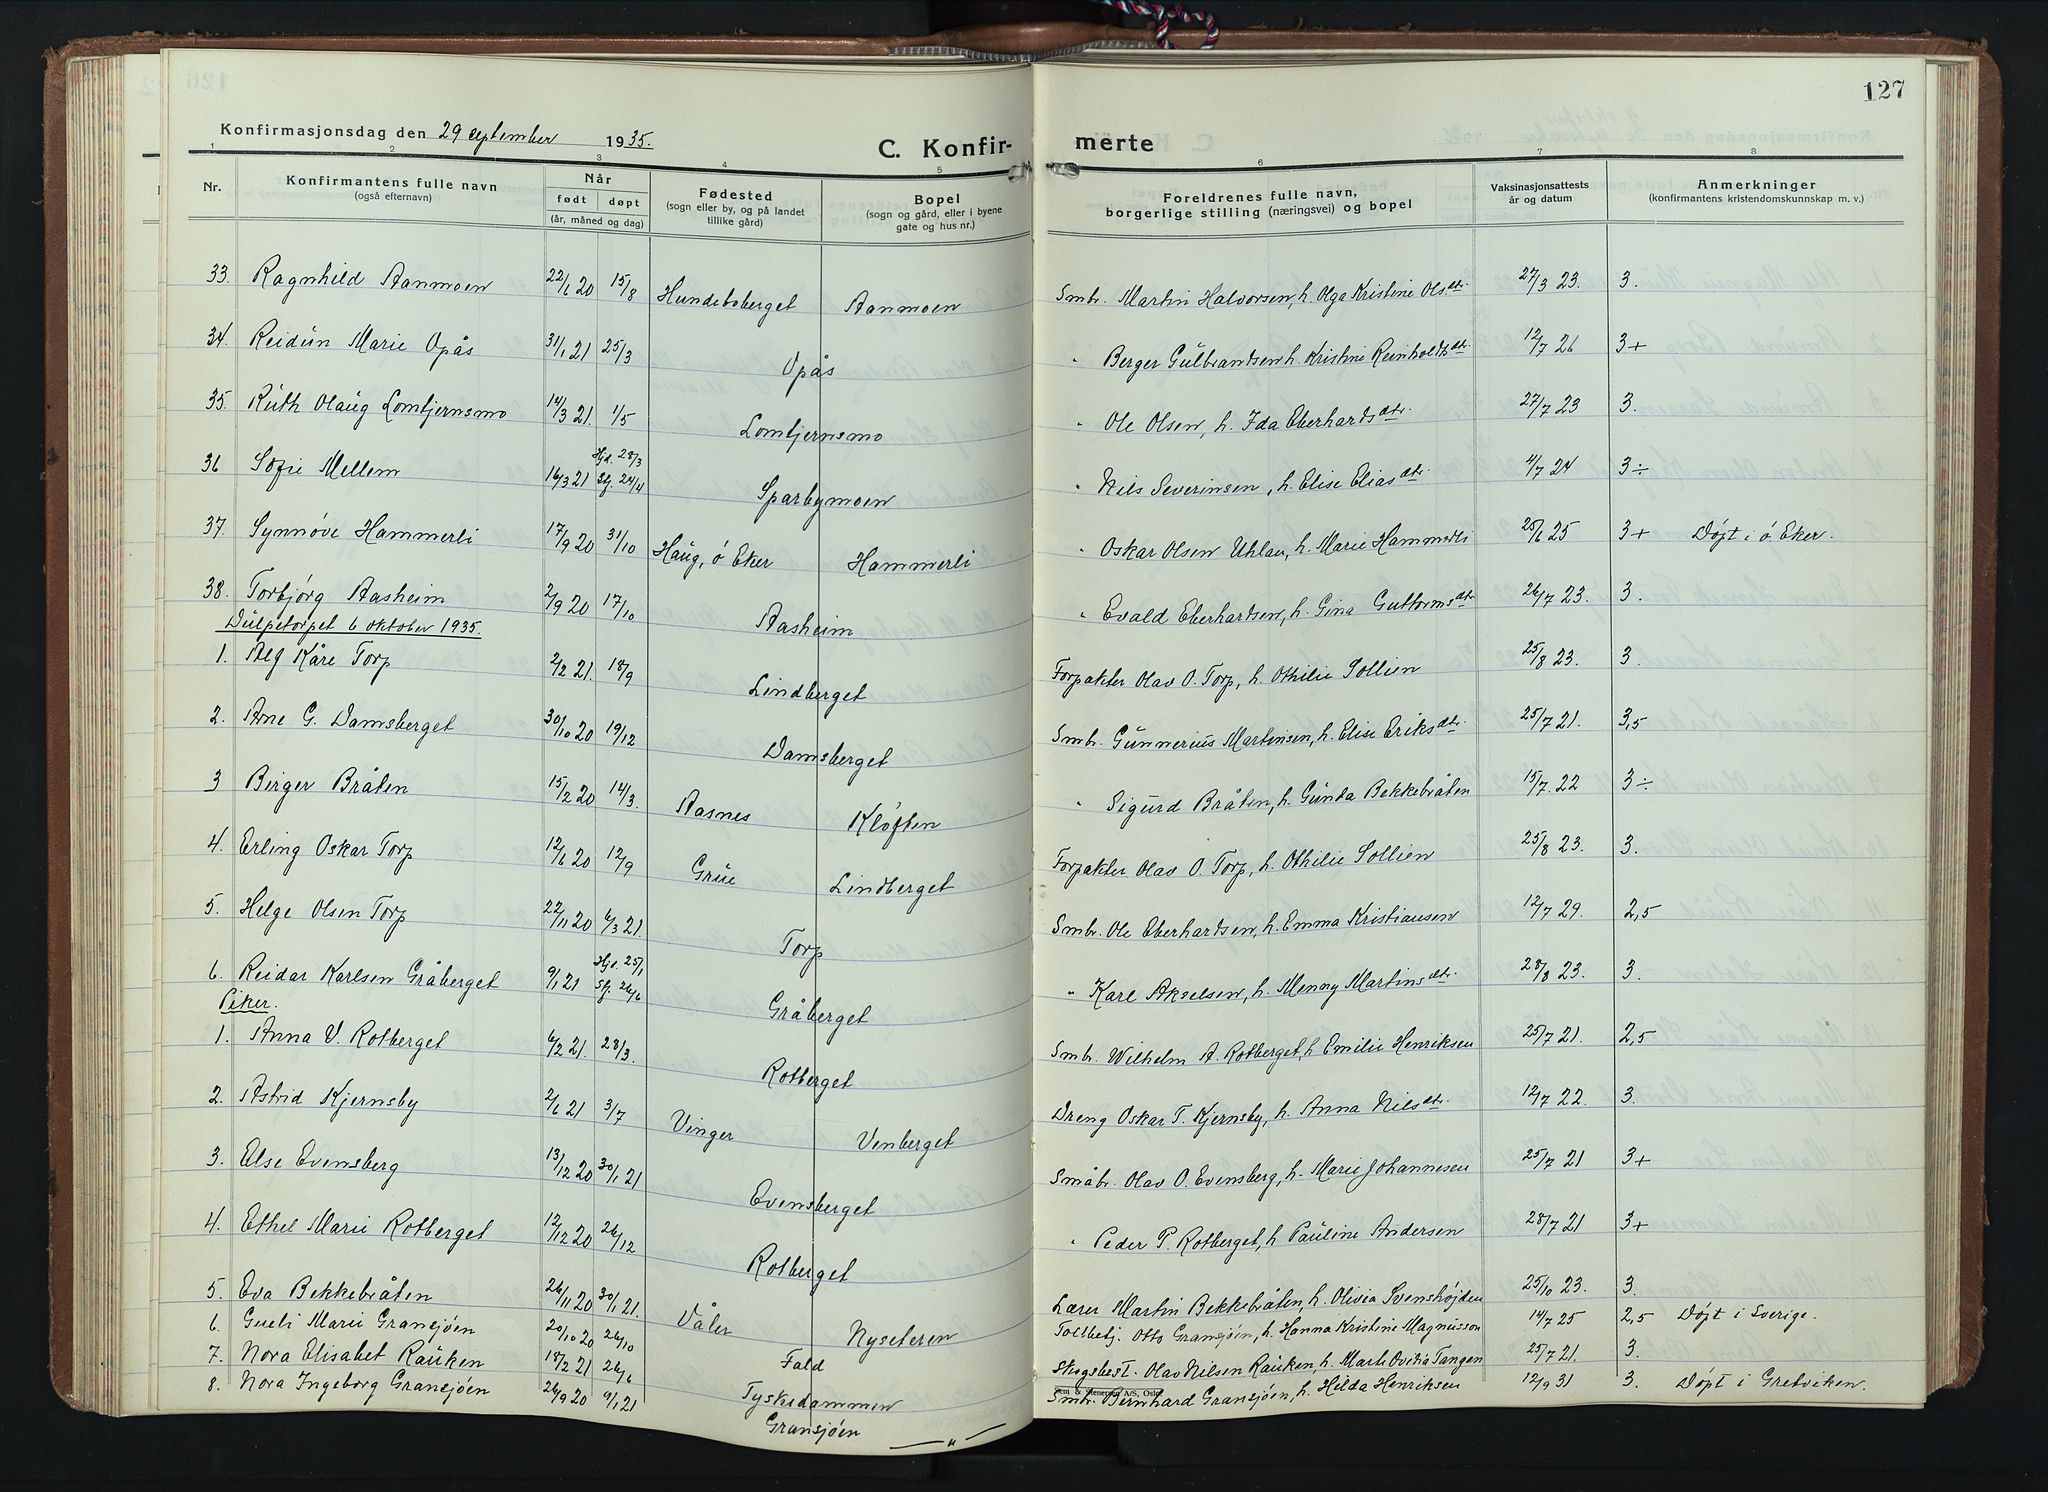 127
Konfirmasjonsdag den 29 september 1935.
C. Konfirmerte
1 2 3 4 5 6 7 8
Nr.
Konfirmantens fulle navn
(også efternavn)
Når
født døpt
(år, måned og dag)
Fødested
(sogn eller by, og på landet
tillike gård)
Bopel
(sogn og gård, eller i byene
gate og hus nr.)
Foreldrenes fulle navn,
borgerlige stilling (næringsvei) og bopel
Vaksinasjonsattests
år og datum
Anmerkninger
(konfirmantens kristendomskunnskap m. v.)
33. Ragnhild Aanmoen 22/6 20 15/8 Hundebberget Aanmoen Smbr. Martin Halvorsen, h. Olga Kristine Olsdtr. 27/3 23. 3.
34. Reidun Marie Opås 31/1 21 25/3 Opås " Berger Gulbrandsen h. Kristine Reinholdtsdtr. 12/7 26 3+
35. Ruth Olaug Lomtjernsmo 14/3 21. 1/5 Lomtjernsmo " Ole Olsen, h. Ida Eberhardsdtr. 27/7 23 3.
36 Sofie Mellem 16/3 21 Hjd. 28/3 Stf. 24/4 Sparbymoen " Nils Severinsen, h. Elise Eliasdtr. 4/7 24 3÷
37. Synnøve Hammerli 17/9 20 31/10 Haug, ø Eker Hammerli " Oskar Olsen Uhlau, h. Marie Hammerli 25/6 25 3+ Døpt i ø. Eker.
38. Torbjørg Aasheim 2/9 20 17/10 Aasheim " Evald Eberhardsen, h. Gina Guttormsdtr 26/7 23. 3.
Dulpetorpet 6 oktober 1935.
1. Alf Kåre Torp 2/2 21. 18/9 Lindberget Forpakter Olav O. Torp, h. Othilie Sollien 25/8 23. 3.
2. Arne G. Damsberget 30/10 20 19/12 Damsberget Smbr. Gunnerius Martinsen, h. Elise Eriksdtr. 25/7 21. 3,5
3 Birger Bråten 15/2 20 14/3. Aasnes Kløften " Sigurd Bråten, h. Gunda Bekkebråten 15/7. 22 3÷
4. Erling Oskar Torp 12/6 20 12/9 Grue Lindberget Forpakter Olav O. Torp, h. Othilie Sollien 25/8 23. 3.
5. Helge Olsen Torp 22/11 20 6/3 21. Torp Smbr. Ole Eberhardsen, h. Emma Kristiansen 12/7 29. 2,5
6. Reidar Karlsen Gråberget 9/1 21 Hjd. 25/1 Stf. 26/6 Gråberget " Karl Akselsen, h. Menny Martinsdtr. 28/8 23. 3.
Piker.
1. Anna V. Rotberget 6/2 21. 28/3. Rotberget Smbr. Wilhelm A. Rotberget, h Emilie Henriksen 25/7 21. 2,5
2. Astrid Kjernsby 2/6 21 3/7 Vinger Venberget Dreng Oskar T. Kjernsby, h. Anna Nilsdtr. 12/7 22. 3.
3. Else Evensberg 13/12 20 30/1 21 Evensberget Småbr. Olav O. Evensberg, h. Marie Johannesen 25/7 21 3+
4. Ethel Marie Rotberget 12/12 20 26/12 Rotberget " Peder P. Rotberget, h Pauline Andersen 28/7 21 3+
5. Eva Bekkebråten 26/11 20 30/1 21. Våler Nyseteren Lærer Martin Bekkebråten, h. Olivia Svenshøjden 25/10 23. 3.
6. Gueli Marie Gransjøen 20/10 20 26/10 Fald Tollbetj. Otto Gransjøen, h. Hanna Kristine Magnusson 14/7 25 2,5 Døpt i Sverige.
7. Nora Elisabet Rauken 18/2 21 26/6 Tyskedammen Skogsbest. Olav Nilsen Rauken, h. Marte Ovidia Tangen 25/7 21. 3.
8. Nora Ingeborg Gransjøen 26/9 20 9/1 21 Gransjøen " Smbr. Bernhard Gransjøen, h. Hilda Henriksen 12/9 31 3. Døpt i Gretviken.